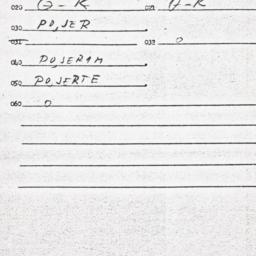 020 G-R 021 Y-R
030 PO,SER
031 032 0
040 DO,SERAM
050 PO,SERTE
060 0